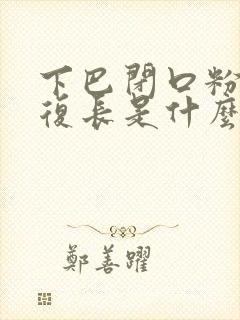 下巴閉口粉
復長是什麼
鄭善躍